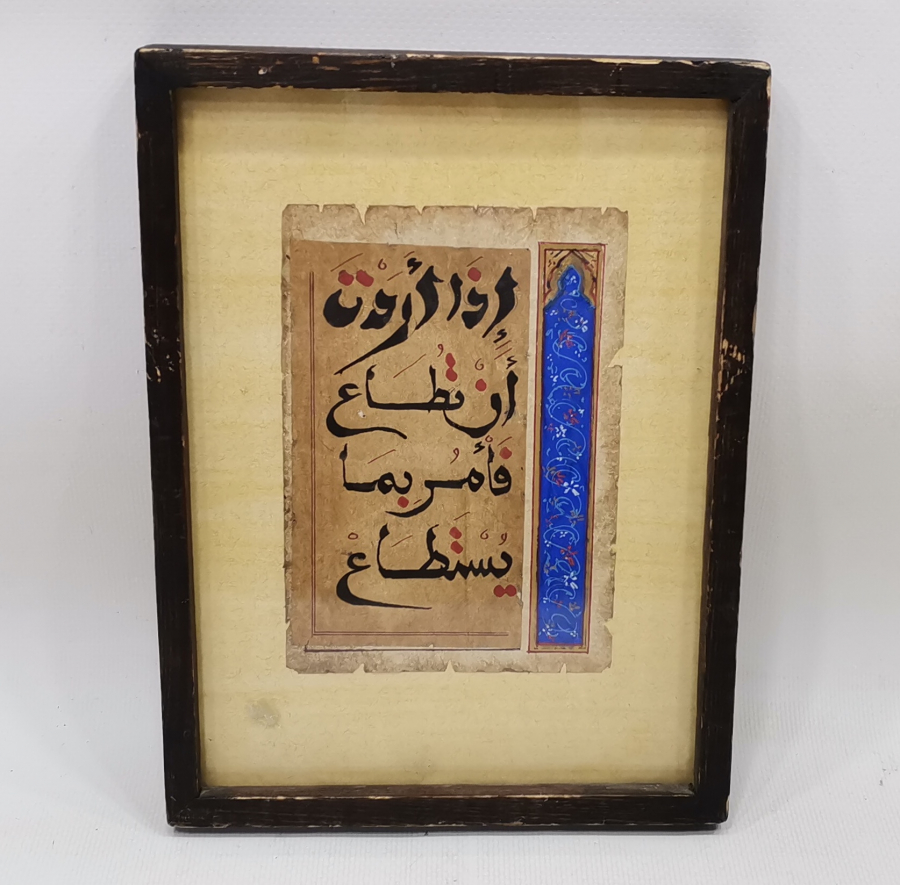 إِذَا أَرَدْتَ
أَنْ تُطَاع
فَأْمُر بِمَا
يُسْتَطَاعْ